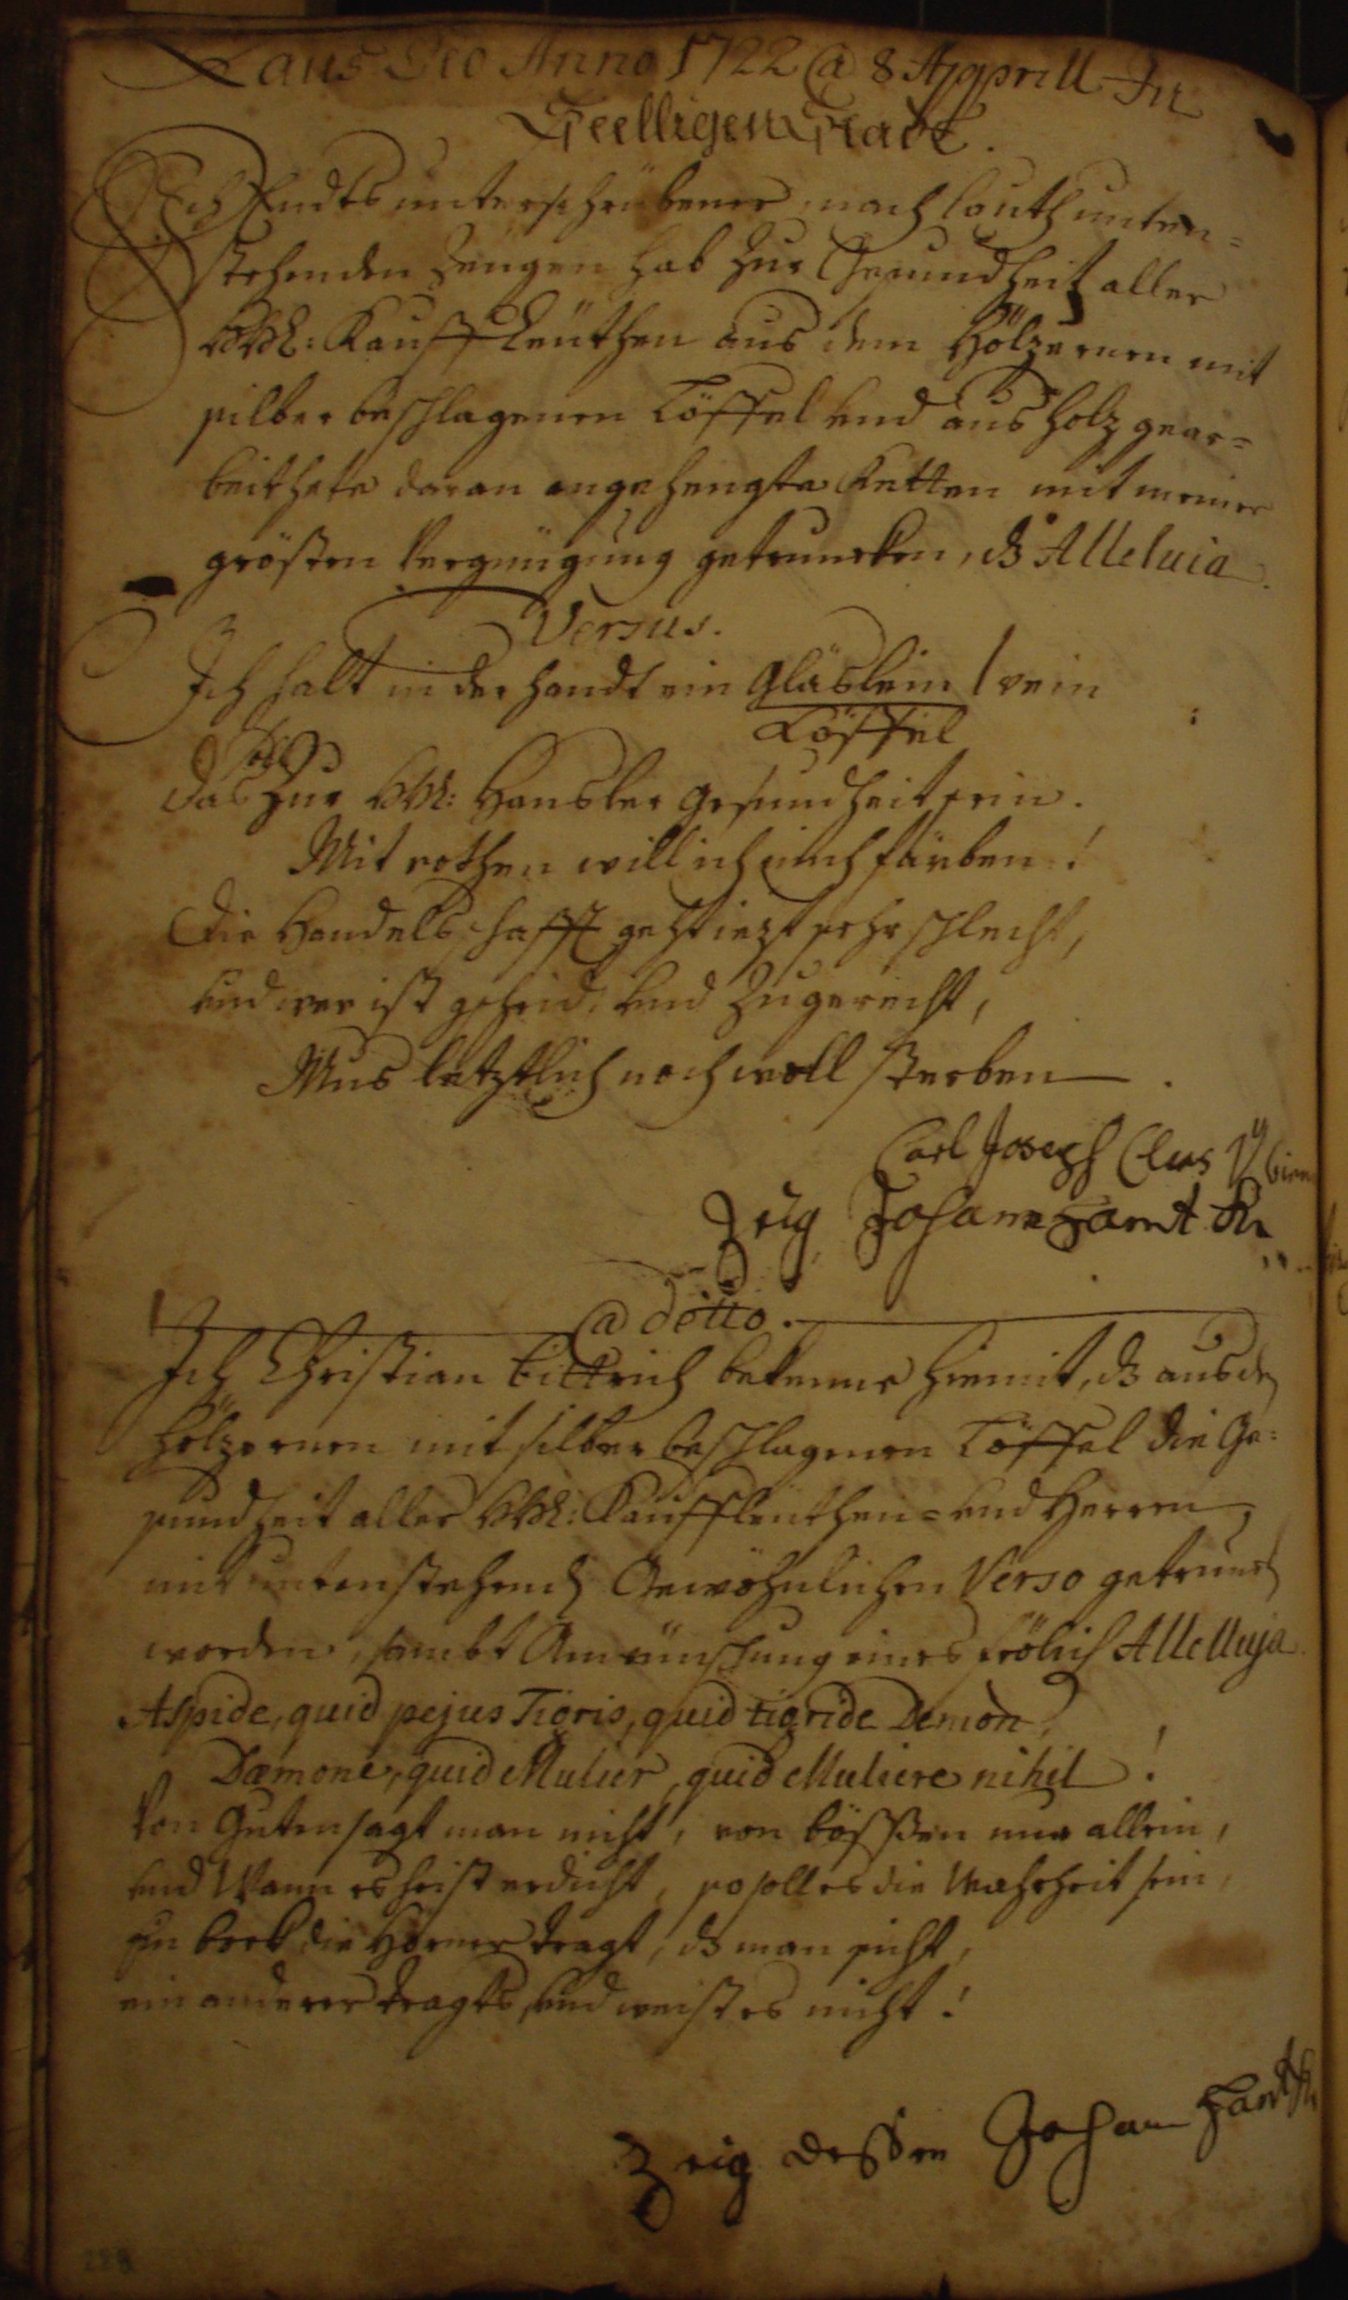 Laus Deo Anno 1722 @ 8 Apprill In
Heelligen Stadt.
Ich Endts unterschribener nach lauth unten=
stehenden Zeugen hab zur Gesundheit aller
Kauff Leüthen aus dem Hölzernen mit
silber beschlagenen Löffel und aus holz gear=
beithete daran angehengte Ketten mit meiner
grösten Vergnügung getruncken, dz Alleluia.
Versus.
Ich halt in der handt ein Gläslein / rein
Löffel
soll
das zur Hansler gesundheit sein.
Mit rothen will ich mich färben!
Die Handelschafft geht iezt sehr schlecht,
und wer ist gescheid, und zugerecht,
Mus letztlich noch woll sterben.
Carl Joseph
Zeig Johann
@ detto.
Ich Christian Tittrich bekenne hiemit, dz aus de
hölzernen mit silber beschlagenen Löffel die Ge=
sundheit aller Kauffleüthen= und Herren,
mit untenstehend Gewöhnlichen Verso getrunck
worden, sambt Anwünschung eines frölich Allelluja.
Aspide, quid pejus Tigris, quid tigride Demon,
Dæmone, quid Mulier, quid Muliere nihil!
Von Guten sagt man nicht, von bösßen nur allein,
und Wann es heist erdicht, so soll es die Wahrheit sein,
ein bock die Hörner tragt, dz man sicht,
ein anderer tragts, und weist es nicht!
Zeig dessen Johann